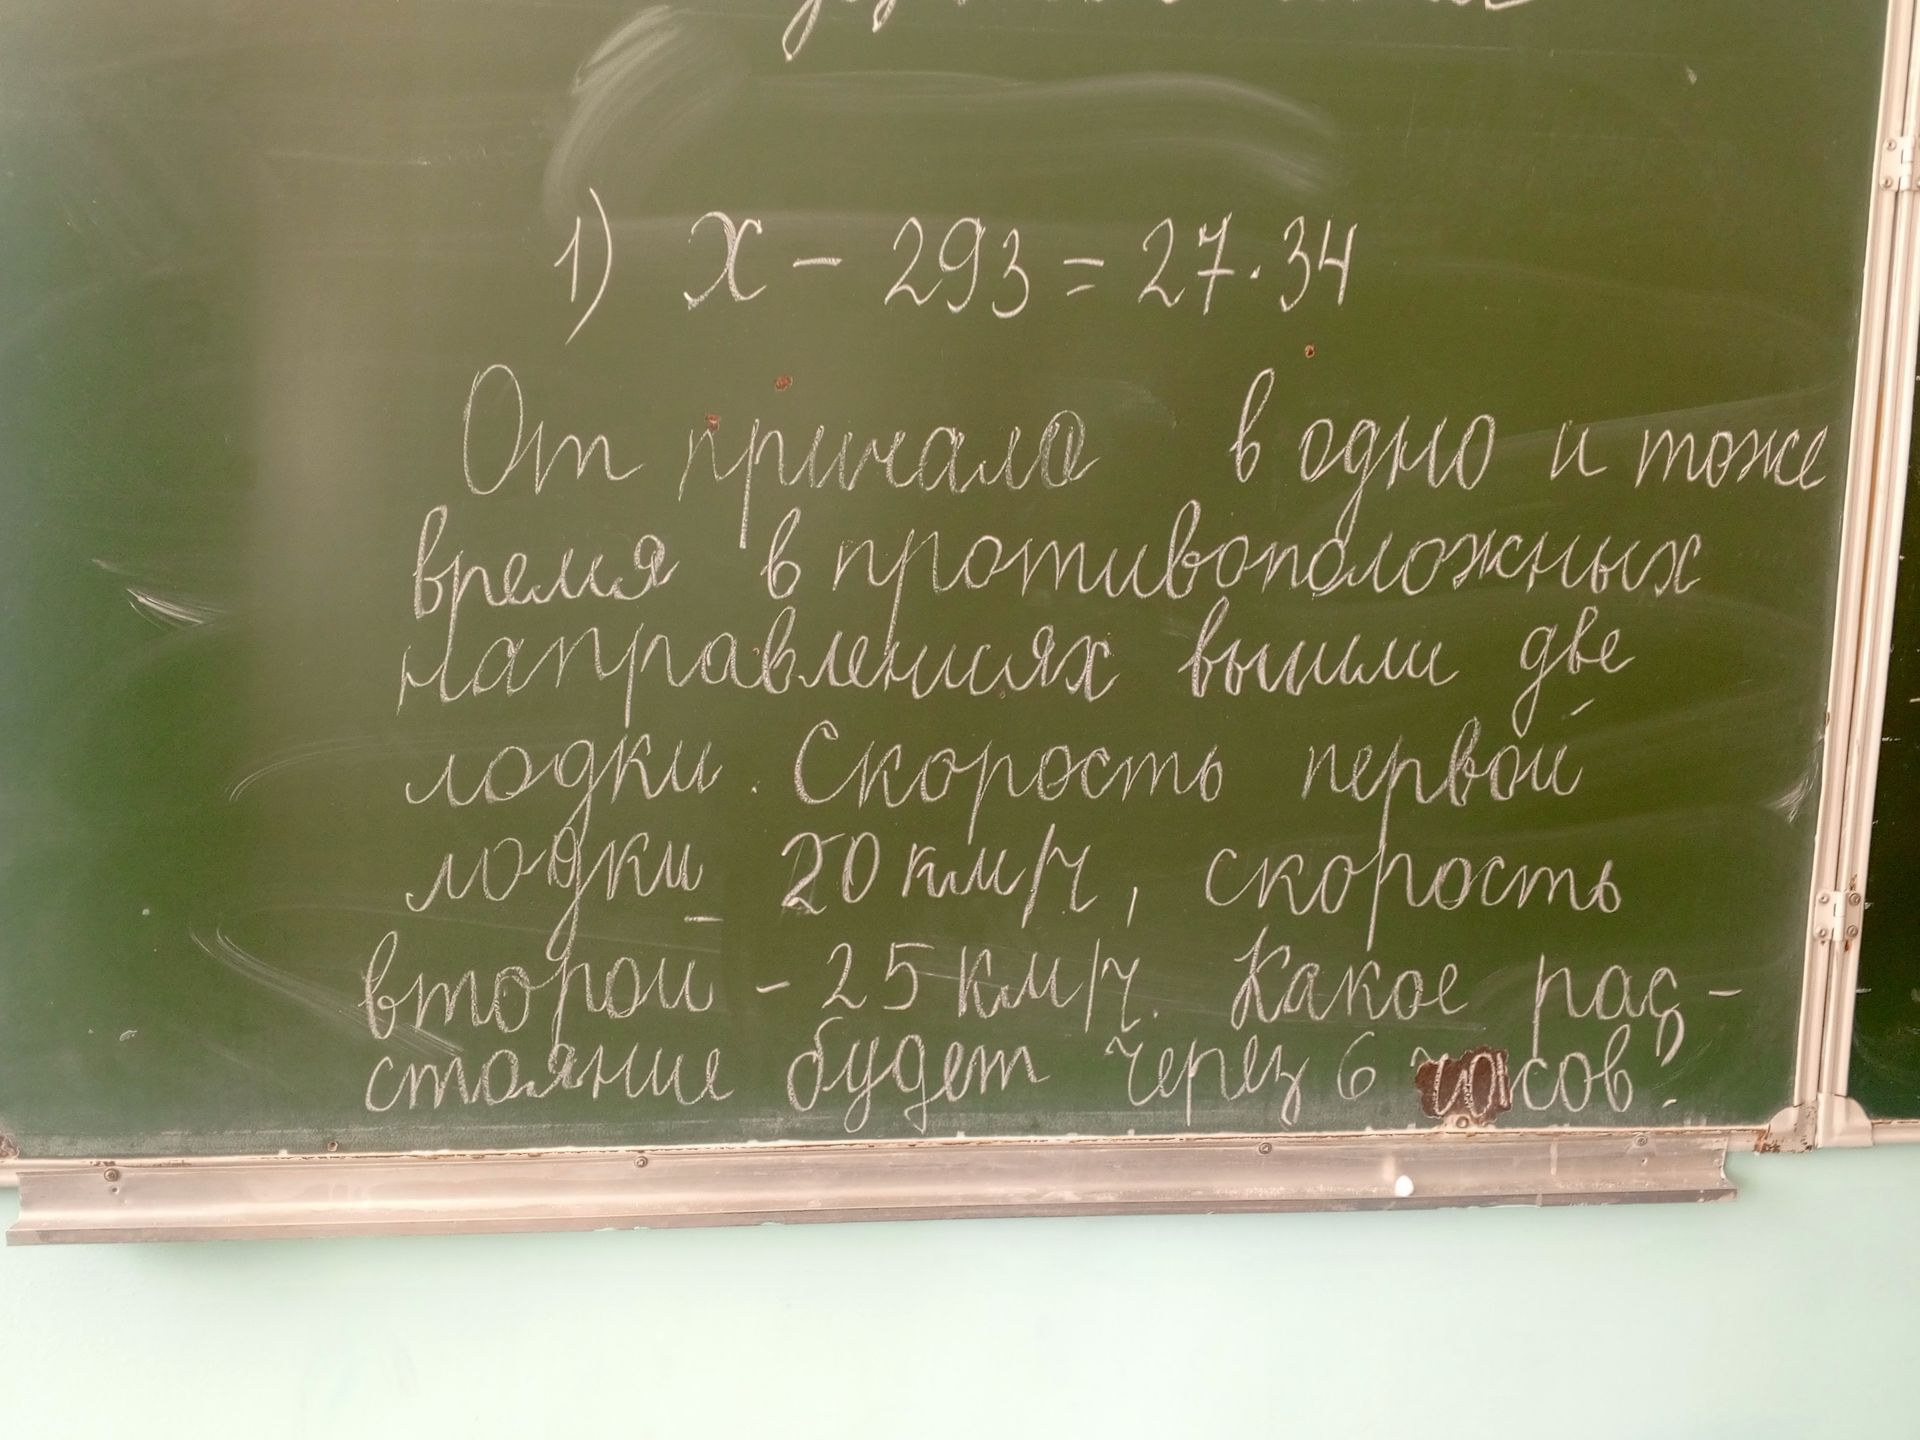 1) x - 293 = 27·34
От причала в одно и тоже
время в противоположных
направлениях вышли две
лодки. Скорость первой
лодки 20 км/ч, скорость
второй - 25 км/ч. Какое рас-
стояние будет через 6 часов?